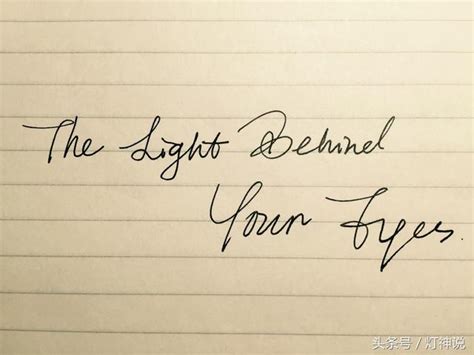 The Light Behind
Your Eyes.
头条号 / 灯神说